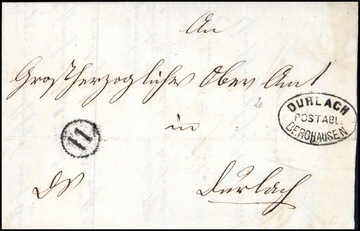 An
Großherzogliches Ober Amt
in
DURLACH
POSTABL.
BERGHAUSEN
11
DS
Durlach